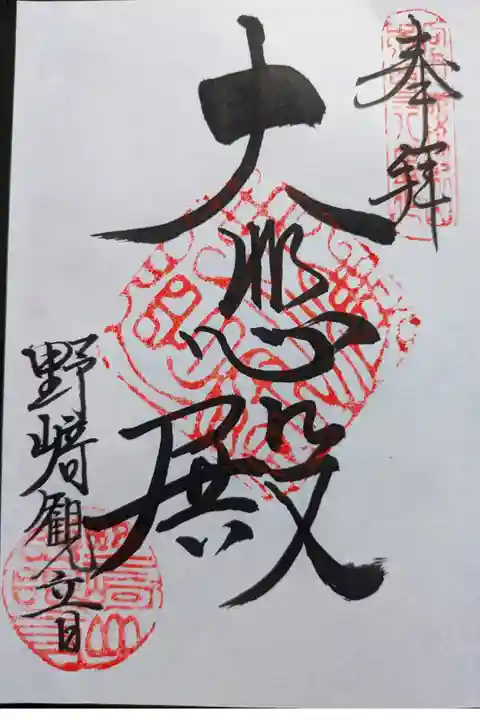 奉拝
大悲殿
野崎観音